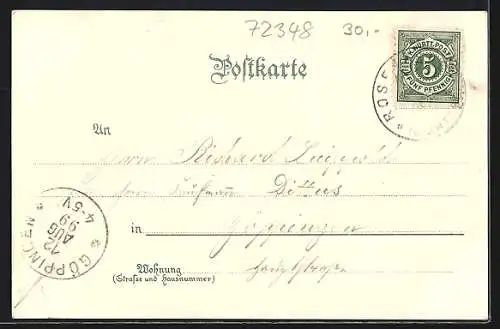 72348 30,-
K. WÜRTT. POST
5
FÜNF PFENNIG
Postkarte
ROSE
An
Herrn Richard
Herrn Kaufmann
in Göppingen
Hauptstraße
Wohnung
(Strasse und Hausnummer)
GÖPPINGEN
12
AUG
99
4-5V